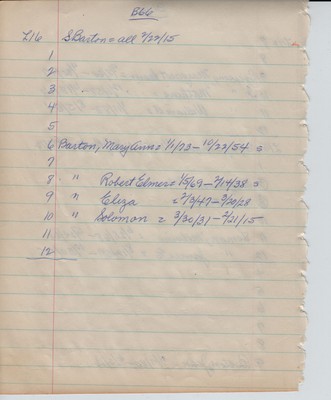 B66
L16 S Barton = all 2/22/15
1
2
3
4
5
6 Barton, Mary Ann = 1/1/73 - 10/22/54 =
7
8 " Robert Elmer = 1/5/69 - 2/14/38 =
9 " Eliza = 2/3/47 - 2/20/28
10 " Solomon = 3/30/31 - 2/21/15
11
12